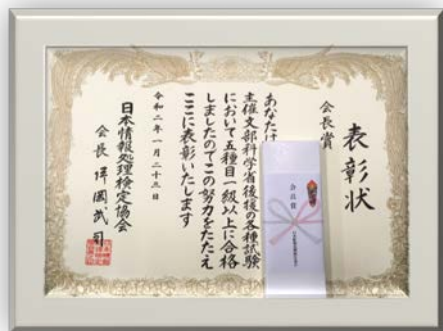 表彰状
会長賞
あなたは
主催文部科学省後援の各種試験
において五種目一級以上に合格
しましたのでこの努力をたたえ
ここに表彰いたします
令和二年一月二十三日
日本情報処理検定協会
会長
会長賞